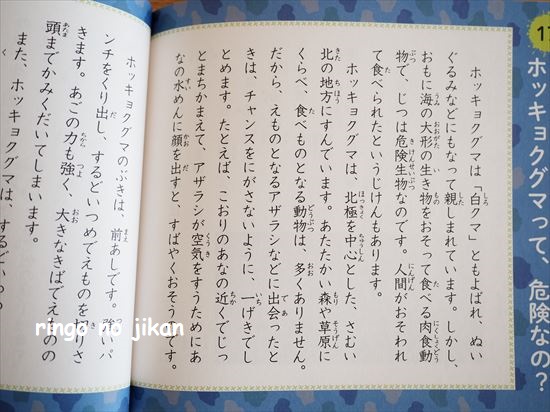 17
ホッキョクグマって、危険なの?
ホッキョクグマは「白クマ」ともよばれ、ぬい
ぐるみなどにもなって親しまれています。しかし、
おもに海の大形の生き物をおそって食べる肉食動
物で、じつは危険生物なのです。人間がおそわれ
て食べられたというじけんもあります。
ホッキョクグマは、北極を中心とした、さむい
北の地方にすんでいます。あたたかい森や草原に
くらべ、食べものとなる動物は、多くありません。
だから、えものとなるアザラシなどに出会ったと
きは、チャンスをにがさないように、一げきでし
とめます。たとえば、こおりのあなの近くでじっ
とまちかまえて、アザラシが空気をすうためにあ
なの水めんに顔を出すと、すばやくおそうのです。
ホッキョクグマのぶきは、前あしです。強いパ
ンチをくり出し、するどいつめでえものを引きさ
きます。あごの力も強く、大きなきばでえものの
頭までかみくだいてしまいます。
また、ホッキョクグマは、するど
ringo no jikan